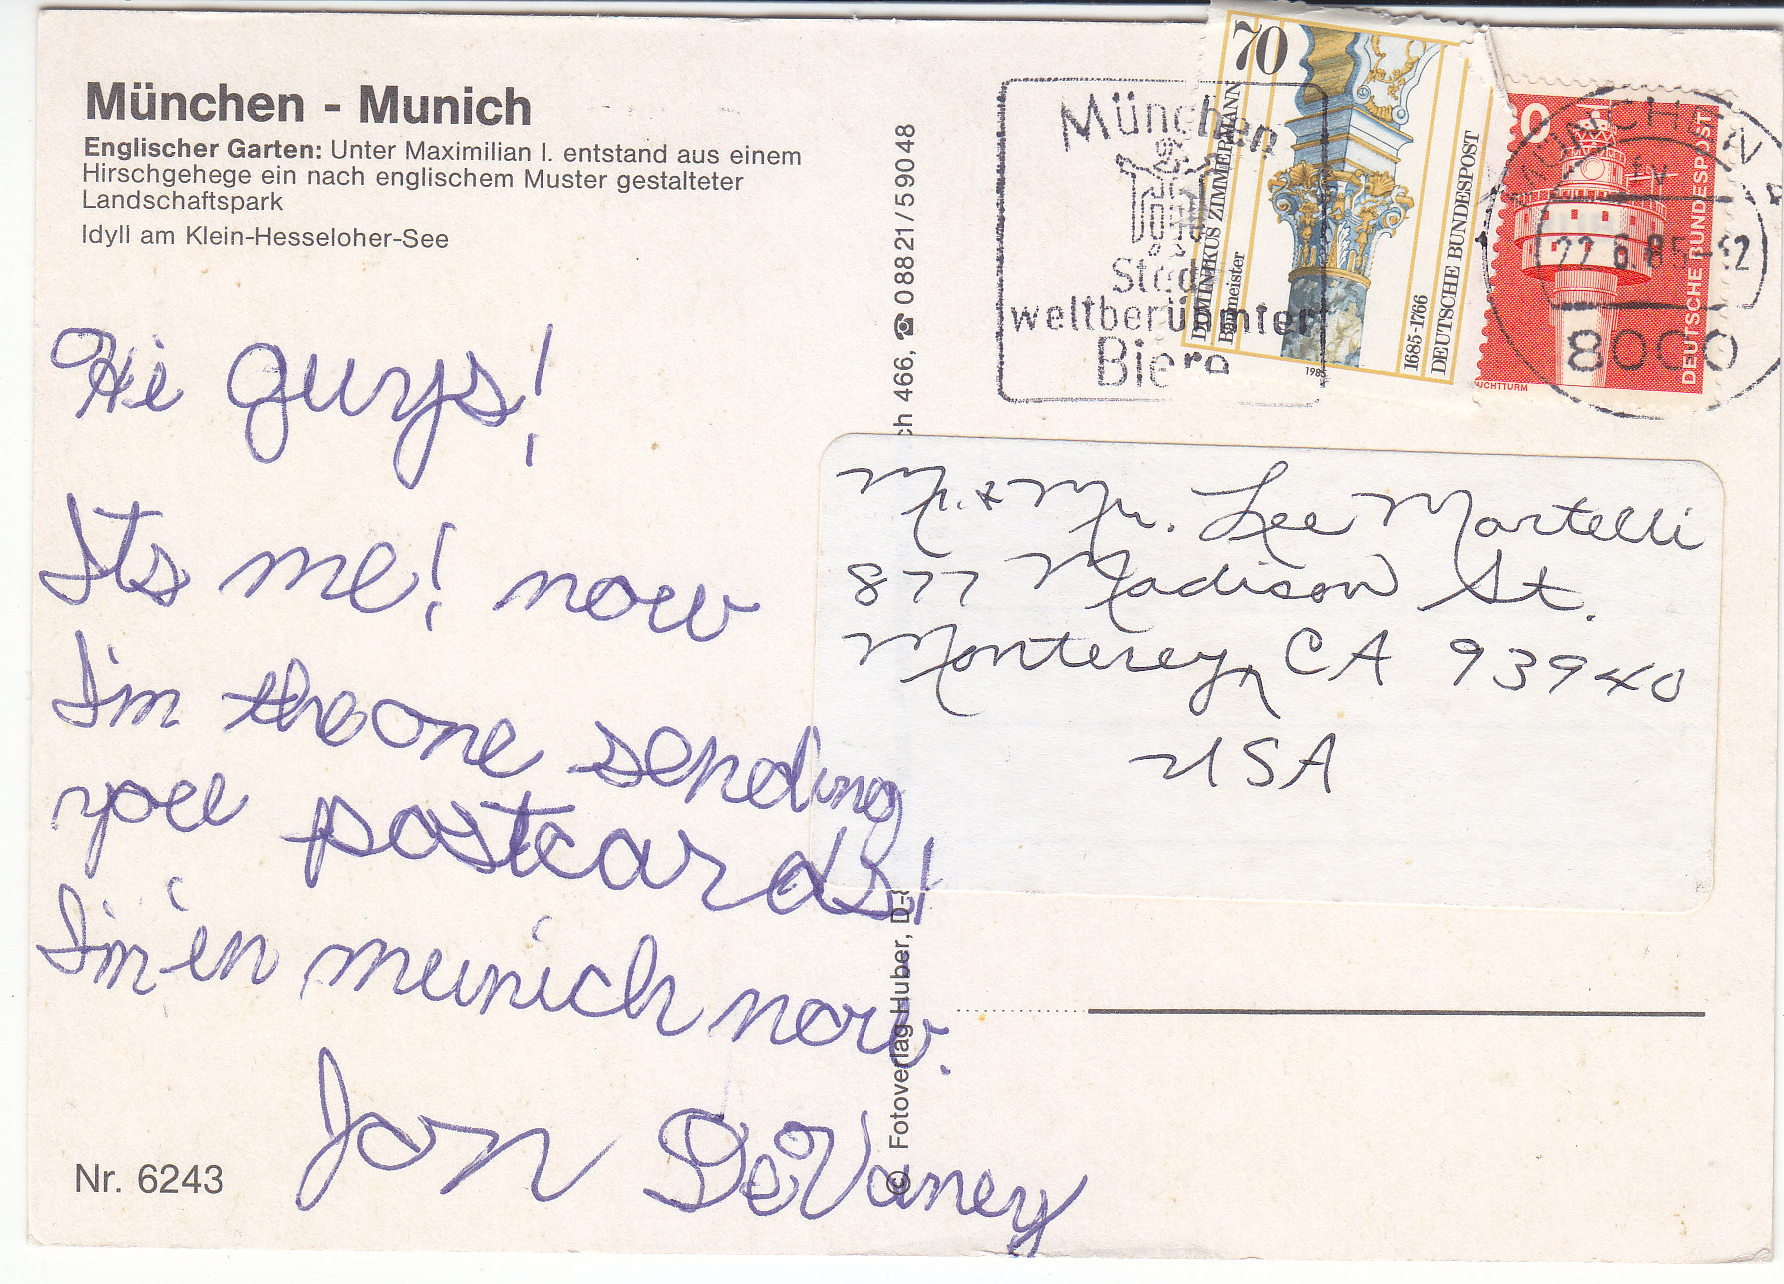 München - Munich
Englischer Garten: Unter Maximilian I. entstand aus einem
Hirschgehege ein nach englischem Muster gestalteter
Landschaftspark
Idyll am Klein-Hesseloher-See
Hi guys!
Its me! now
I'm the one sending
you postcards!
I'm in munich now.
Jon DeVaney
Nr. 6243
© Fotoverlag Huber, D-
ch 466, ☎ 08821/59048
München
Stadt
weltberühmter
Biere
70
DOMINIKUS ZIMMERMANN
Baumeister
1685-1766
DEUTSCHE BUNDESPOST
1985
0
DEUTSCHE BUNDESPOST
UCHTTURM
MÜNCHEN
22.6.85-12
8000
Mr. & Mr. Lee Martelli
877 Madison St.
Monterey, CA 93940
USA